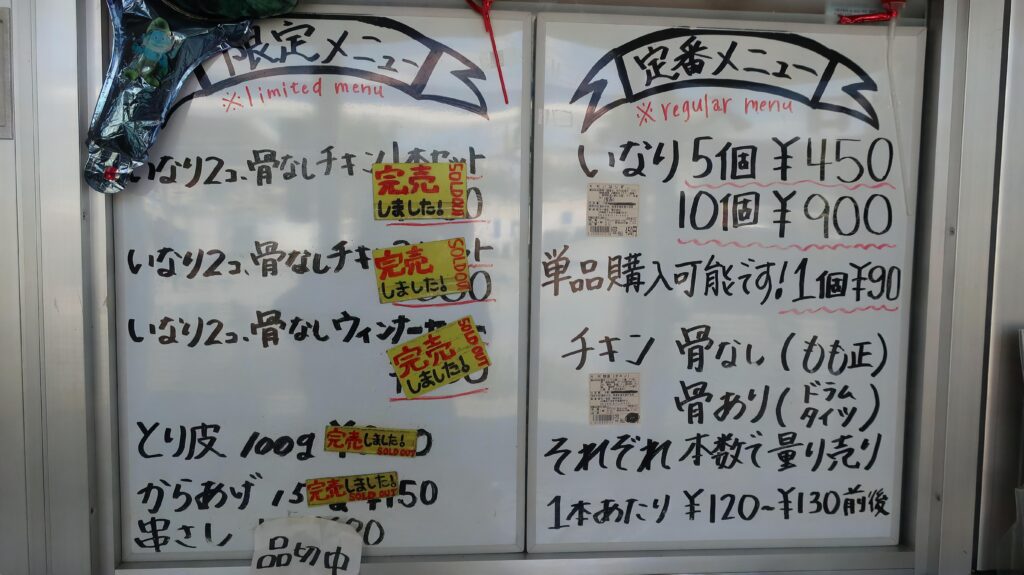 限定メニュー
※limited menu
いなり2コ、骨なしチキン1本セット
完売
しました!
SOLD OUT
0
いなり2コ、骨なしチキ
セット
完売
しました!
SOLD OUT
00
いなり2コ、骨なしウィンナー
完売
しました!
SOLD OUT
0
とり皮 100g ¥
完売しました!
SOLD OUT
0
からあげ 1
完売しました!
SOLD OUT
¥150
串さし
品切中
定番メニュー
※regular menu
いなり 5個 ¥450
10個 ¥900
単品購入可能です!1個¥90
チキン 骨なし(もも正)
骨あり(ドラム
タイツ)
それぞれ 本数で量り売り
1本あたり ¥120~¥130前後